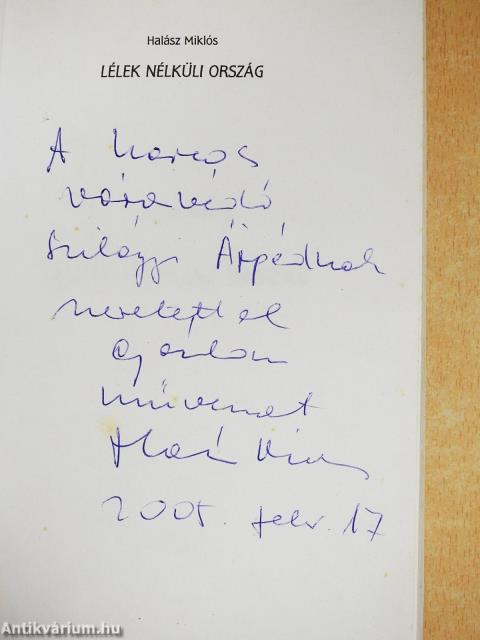 Halász Miklós
LÉLEK NÉLKÜLI ORSZÁG
A harcos
váravédő
Szilágyi Árpádnak
szeretettel
ajánlom
művemet
Halász Miklós
2005. febr. 17
Antikvárium.hu